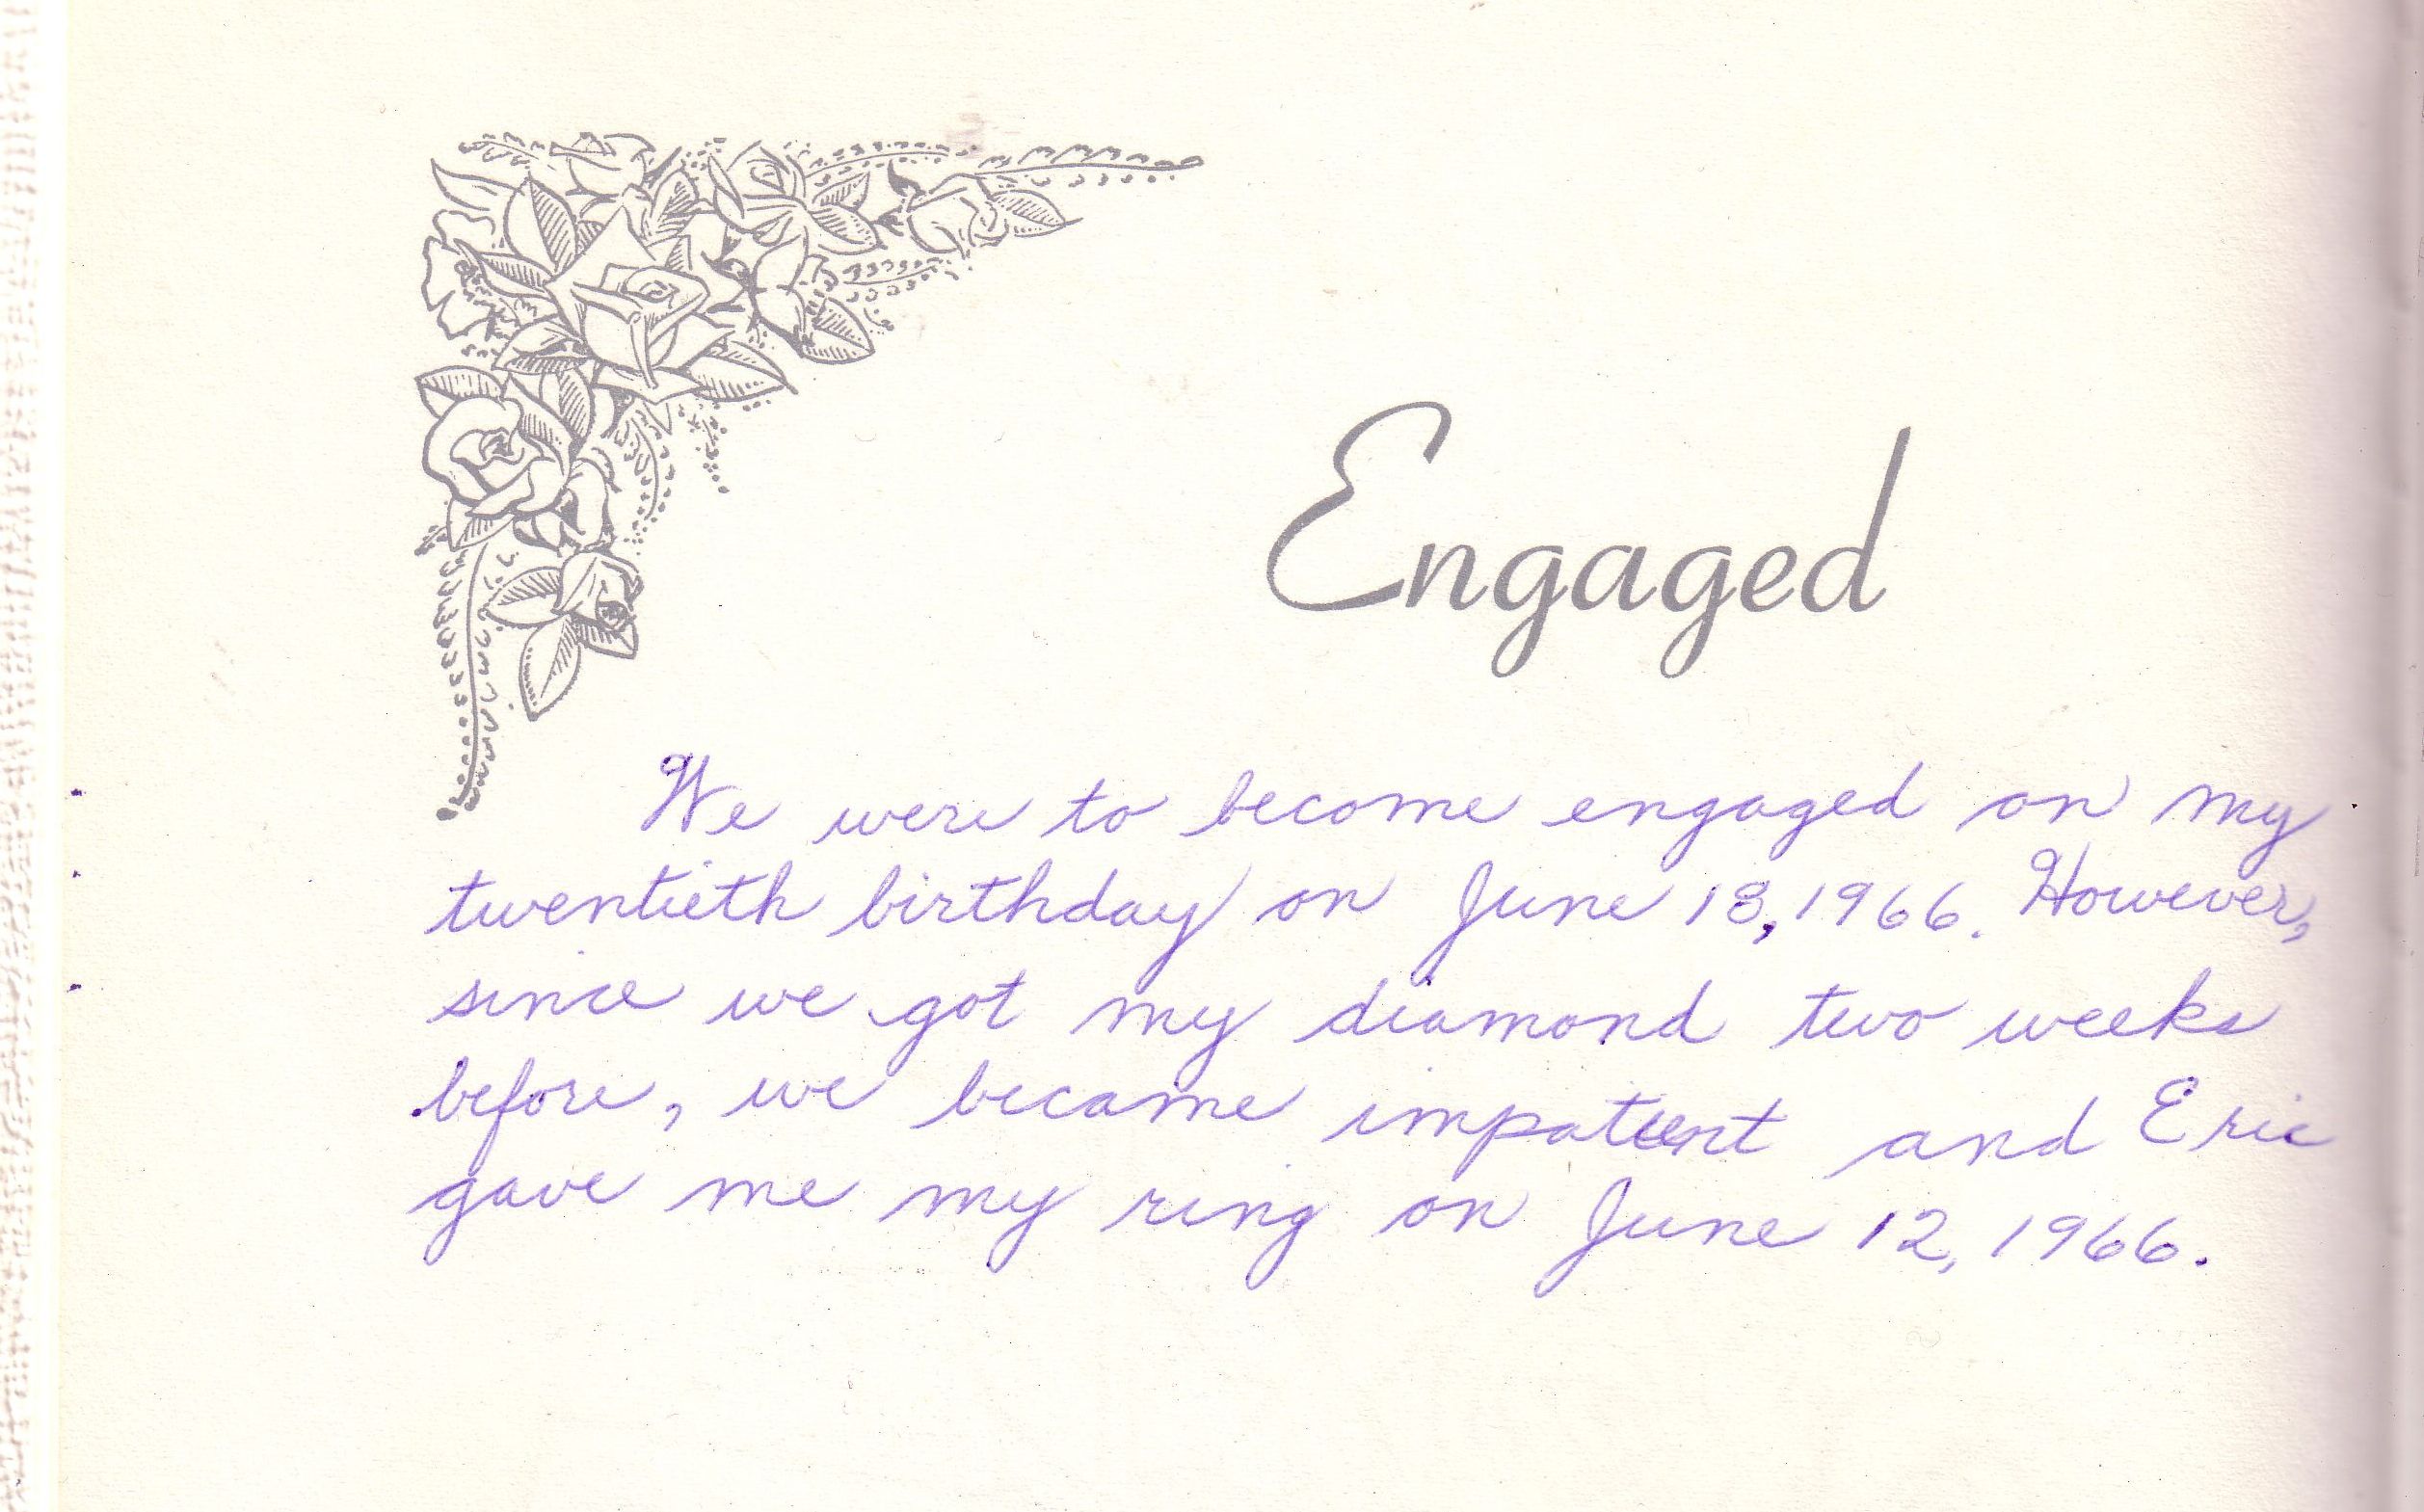 Engaged
We were to become engaged on my
twentieth birthday on June 18, 1966. However,
since we got my diamond two weeks
before, we became impatient and Eric
gave me my ring on June 12, 1966.